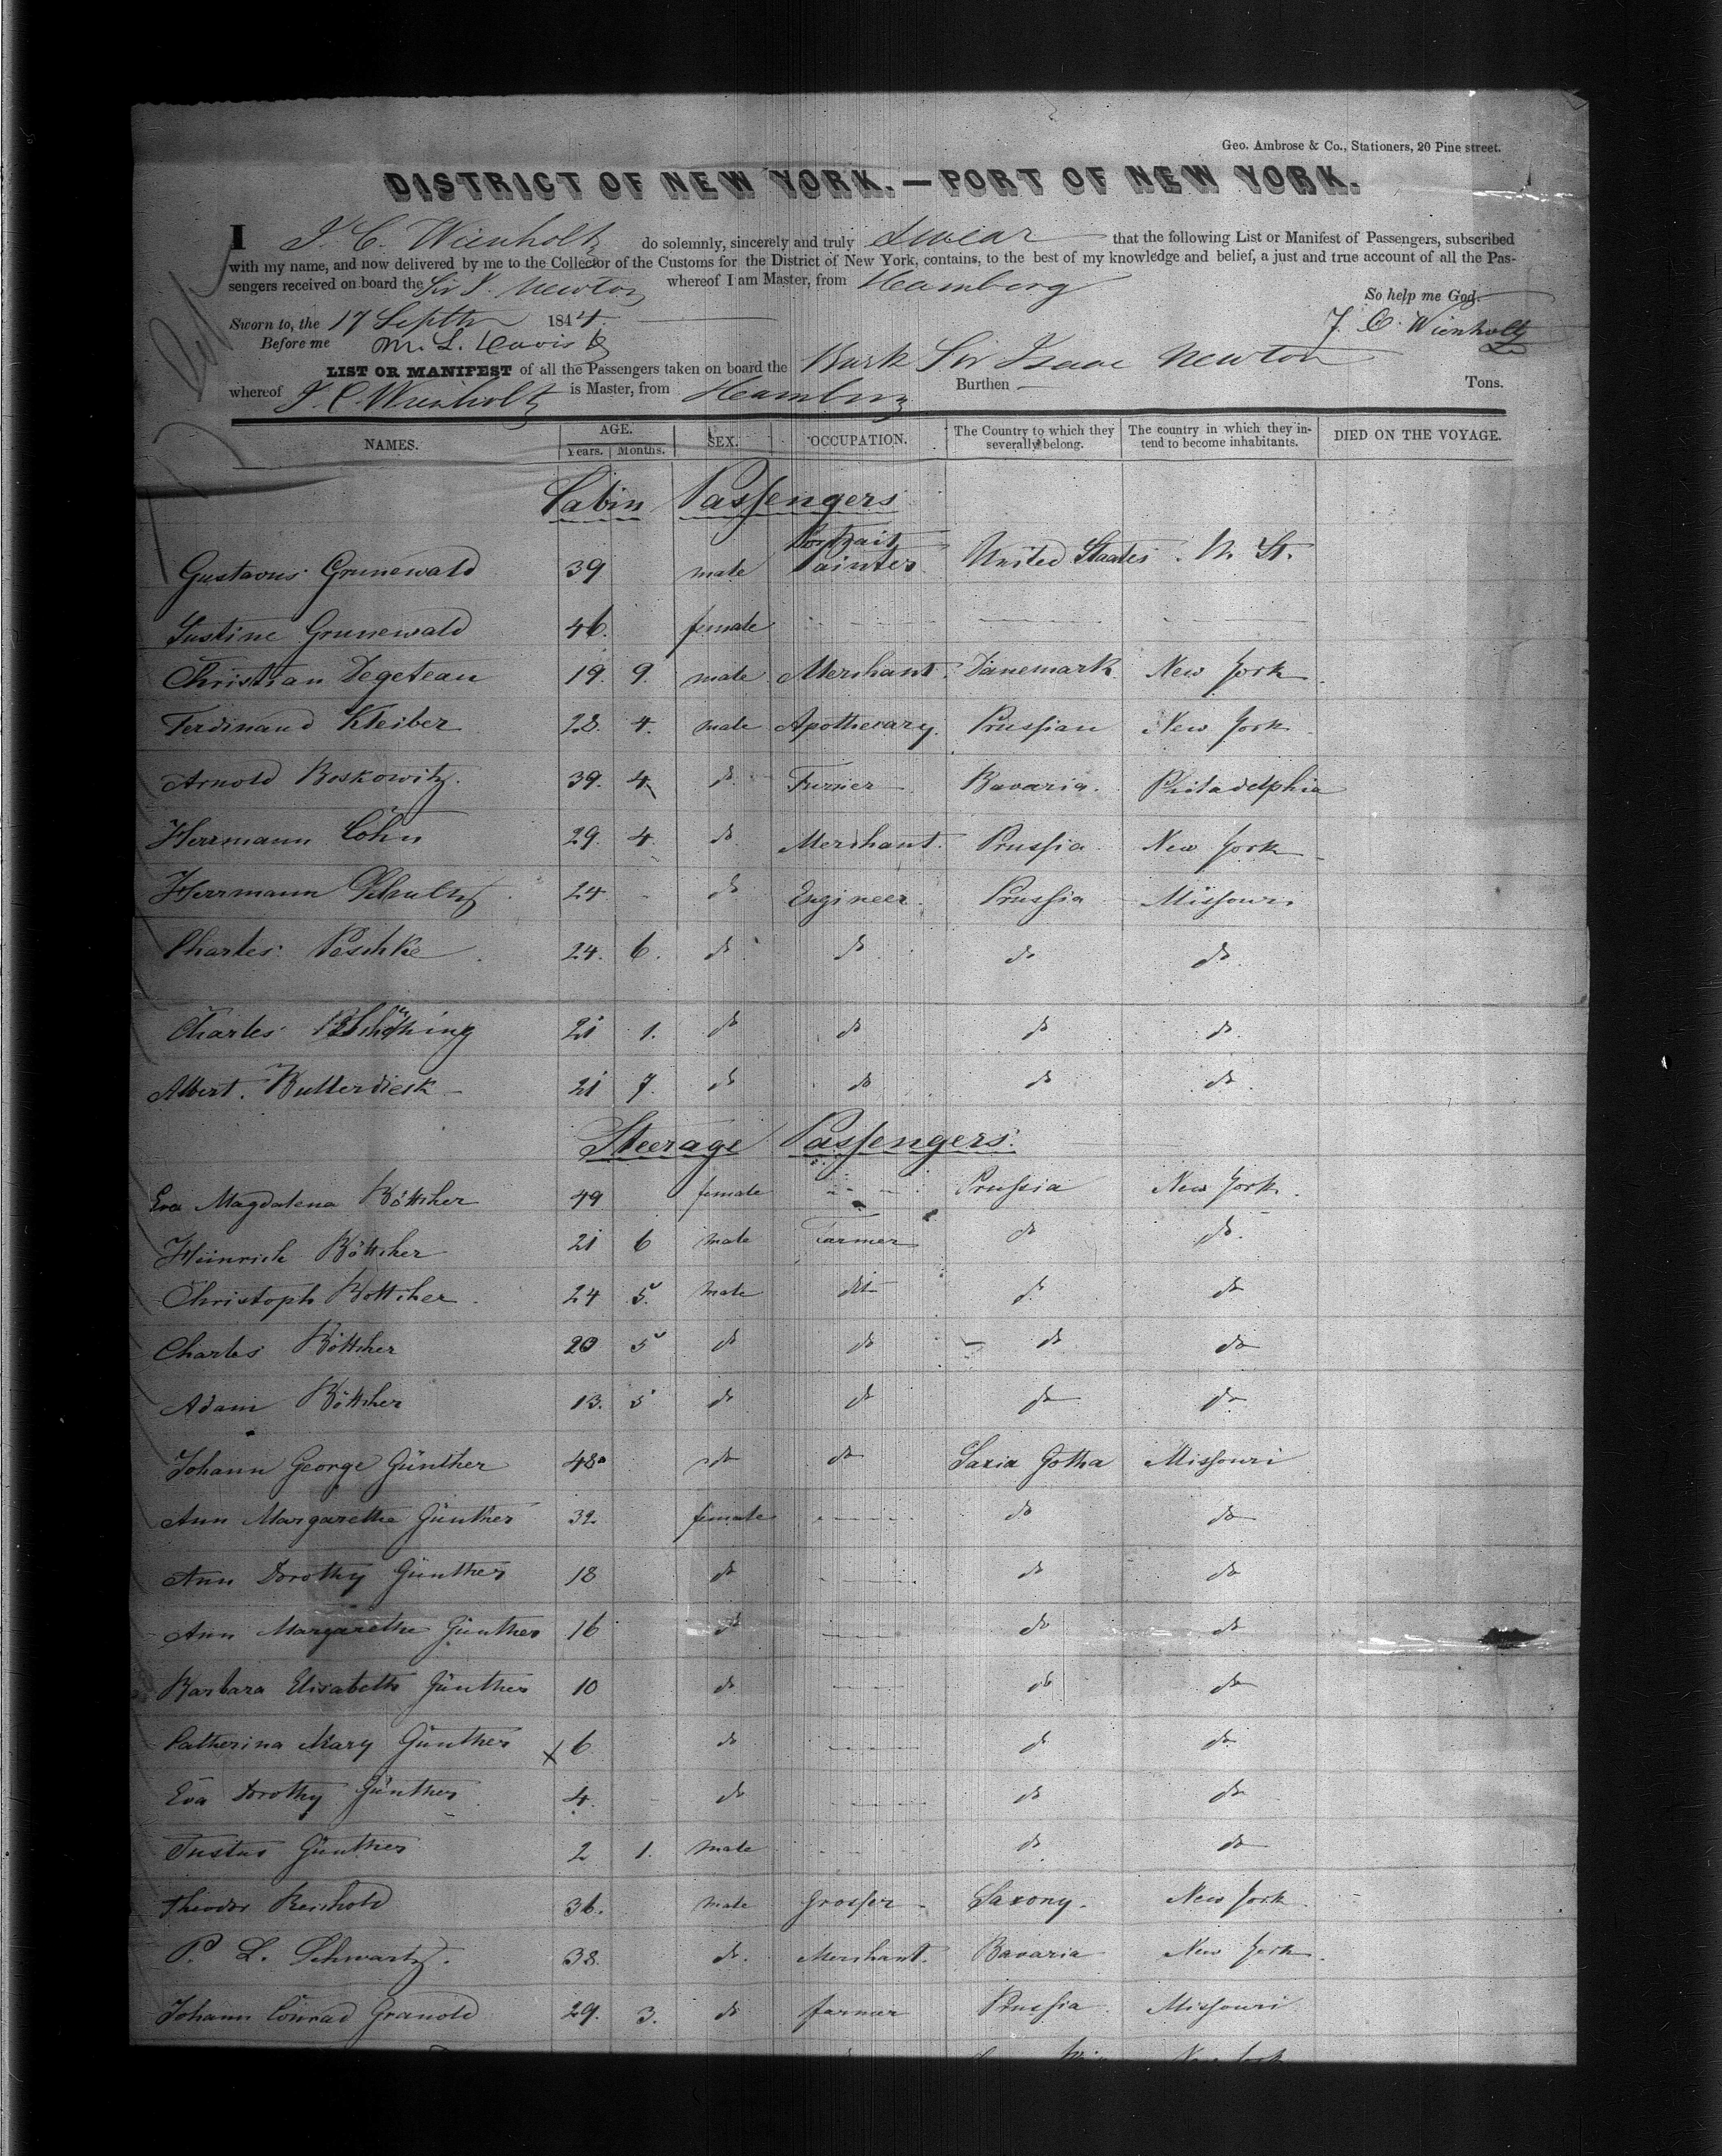 Geo. Ambrose & Co., Stationers, 20 Pine street.
DISTRICT OF NEW YORK.—PORT OF NEW YORK.
I J. C. Wienholtz do solemnly, sincerely and truly swear that the following List or Manifest of Passengers, subscribed
with my name, and now delivered by me to the Collector of the Customs for the District of New York, contains, to the best of my knowledge and belief, a just and true account of all the Pas-
sengers received on board the Sir I. Newton whereof I am Master, from Hamburg
So help me God.
Sworn to, the 17 Septbr 1844. J. C. Wienholtz
Before me M. L. Davis
LIST OR MANIFEST of all the Passengers taken on board the Bark Sir Isaac Newton
whereof J. C. Wienholtz is Master, from Hamburg Burthen — Tons.
NAMES. AGE. Years. Months. SEX. OCCUPATION. The Country to which they severally belong. The country in which they intend to become inhabitants. DIED ON THE VOYAGE.
Cabin Passengers
Gustavus Grunewald 39 male Portrait Painter United Staates N. St.
Justine Grunewald 46. female
Christian Degeteau 19. 9. male Merchant. Dänemark New York
Ferdinand Kleiber 28. 4. male Apothecary. Prussian New York
Arnold Boskowitz. 39. 4 do Furrier Bavaria. Philadelphia
Herrmann Cohn 29. 4. do Merchant. Prussia. New York
Herrmann Schultz 24 - do Engineer. Prussia Missouri
Charles Peschke 24. 6. do do do do
Charles 21 1. do do do do
Albert. Butterdieck 21 7. do do do do
Steerage Passengers.
Eva Magdalena Böttcher 49 female Prussia New York.
Heinrich Böttcher 21 6 male Farmer do do
Christoph Bottcher 24 5. male dit do do
Charles Böttcher 20 5 do do do do
Adam Böttcher 13. 5 do do do do
Johann George Günther 48 do do Saxia Gotha Missouri
Ann Margarethe Günther 32. female do do
Ann Dorothy Günther 18 do do do
Ann Margarethe Günther 16 do do do
Barbara Elisabeth Günther 10 do do do
Catherina Mary Günther x 6 do do do
Eva Dorothy Günther 4. do do do
Justus Günther 2 1. male do do
Theodor Reinhold 36. male Grosser Saxony. New York
P. L. Schwartz. 38. do. Merchant. Bavaria New York
Johann Conrad Granold 29. 3. do farmer Prussia. Missouri
New York